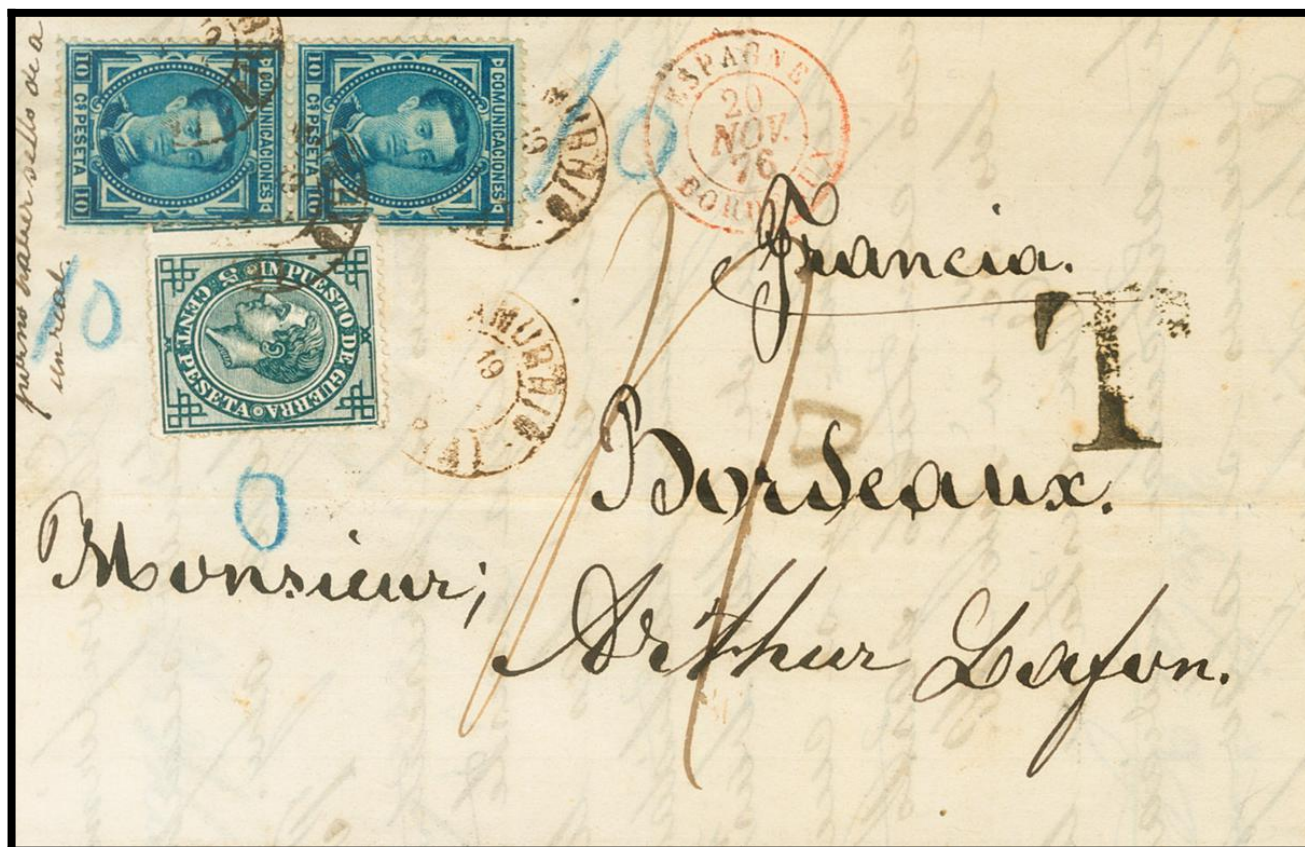 por no haver sellos de a
un real.
COMUNICACIONES
10 CS PESETA 10
COMUNICACIONES
10 CS PESETA 10
IMPUESTO DE GUERRA
5 CENT PESETA
AMURRIO
19
ESPAGNE
20
NOV.
76
0
0
0
T
Francia.
Bordeaux.
Monsieur;
Arthur Lafon.